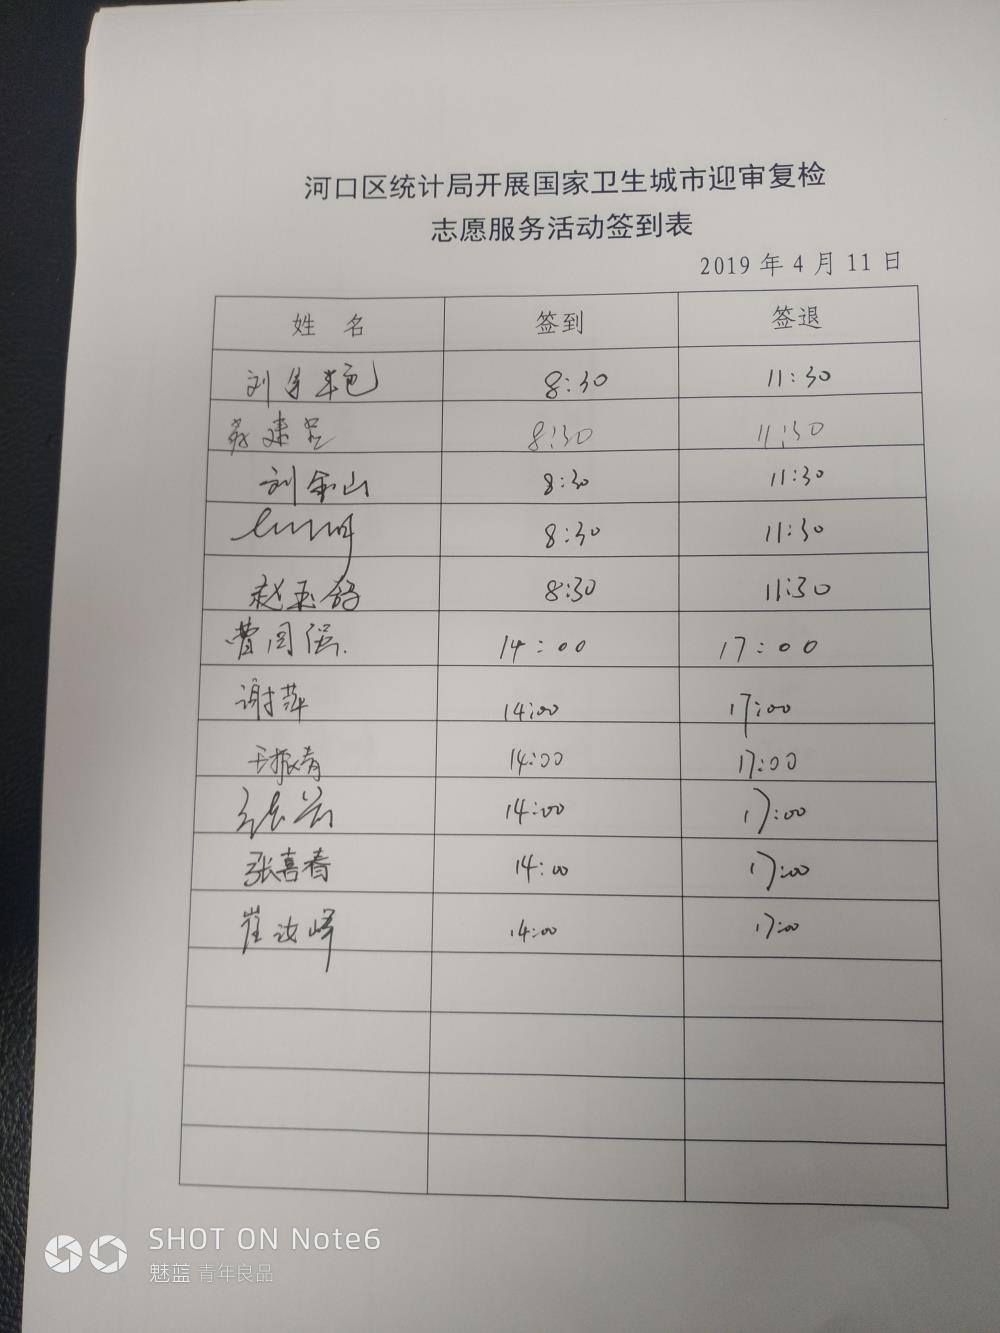 河口区统计局开展国家卫生城市迎审复检
志愿服务活动签到表
2019 年 4 月 11 日
姓 名 签到 签退
刘 8:30 11:30
建 8:30 11:30
刘金山 8:30 11:30
8:30 11:30
赵玉铭 8:30 11:30
曹国强. 14:00 17:00
谢萍 14:00 17:00
王振青 14:00 17:00
14:00 17:00
张喜春 14:00 17:00
崔汝峰 14:00 17:00
SHOT ON Note6
魅蓝 青年良品